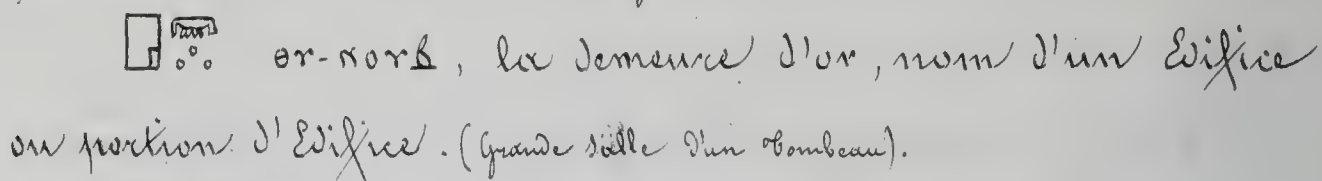 𓉗 𓋞 -ⲛⲟⲩⲃ, la demeure d'or, nom d'un Edifice
ou portion d'Edifice. (Grande salle d'un tombeau).